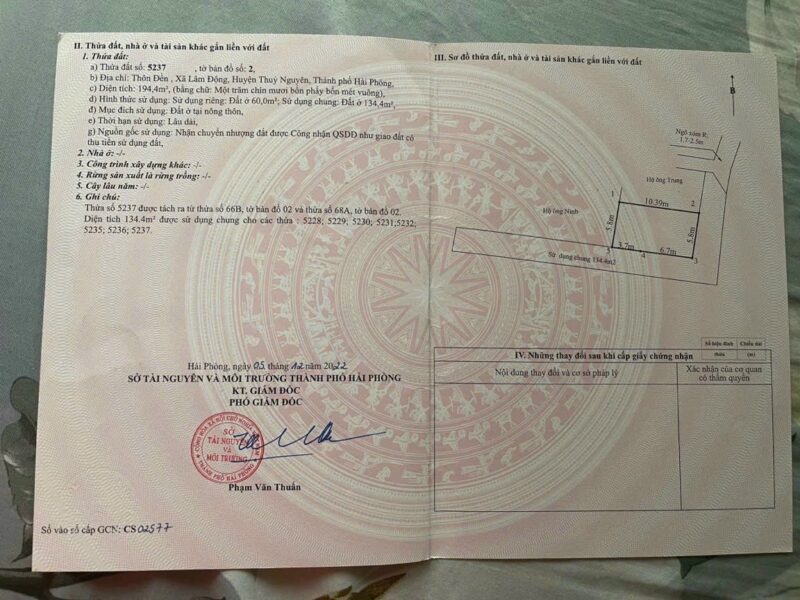 II. Thửa đất, nhà ở và tài sản khác gắn liền với đất
1. Thửa đất:
a) Thửa đất số: 5237 , tờ bản đồ số: 2,
b) Địa chỉ: Thôn Đền , Xã Lâm Động, Huyện Thuỷ Nguyên, Thành phố Hải Phòng,
c) Diện tích: 194,4m², (bằng chữ: Một trăm chín mươi bốn phẩy bốn mét vuông),
d) Hình thức sử dụng: Sử dụng riêng: Đất ở 60,0m²; Sử dụng chung: Đất ở 134,4m²,
đ) Mục đích sử dụng: Đất ở tại nông thôn,
e) Thời hạn sử dụng: Lâu dài,
g) Nguồn gốc sử dụng: Nhận chuyển nhượng đất được Công nhận QSDĐ như giao đất có
thu tiền sử dụng đất,
2. Nhà ở: -/-
3. Công trình xây dựng khác: -/-
4. Rừng sản xuất là rừng trồng: -/-
5. Cây lâu năm: -/-
6. Ghi chú:
Thửa số 5237 được tách ra từ thửa số 66B, tờ bản đồ 02 và thửa số 68A, tờ bản đồ 02.
Diện tích 134.4m² được sử dụng chung cho các thửa : 5228; 5229; 5230; 5231;5232;
5235; 5236; 5237.
Hải Phòng, ngày 05 tháng 12 năm 2022
SỞ TÀI NGUYÊN VÀ MÔI TRƯỜNG THÀNH PHỐ HẢI PHÒNG
KT. GIÁM ĐỐC
PHÓ GIÁM ĐỐC
CỘNG HÒA XÃ HỘI CHỦ NGHĨA
SỞ
TÀI NGUYÊN
VÀ
MÔI TRƯỜNG
THÀNH PHỐ HẢI PHÒNG
Phạm Văn Thuấn
Số vào sổ cấp GCN: CS 02577
III. Sơ đồ thửa đất, nhà ở và tài sản khác gắn liền với đất
B
Ngõ xóm R:
1.7-2.5m
Hộ ông Trung
1
10.39m
2
Hộ ông Ninh
5.8m
5.8m
5
3.7m
4
6.7m
3
Sử dụng chung 134.4m2
Số hiệu đỉnh
thửa
Chiều dài
(m)
IV. Những thay đổi sau khi cấp giấy chứng nhận
Nội dung thay đổi và cơ sở pháp lý
Xác nhận của cơ quan
có thẩm quyền